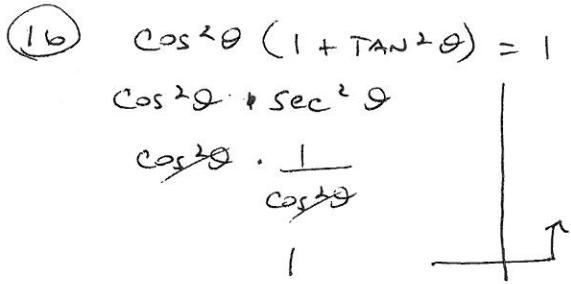 16 cos²θ (1 + TAN²θ) = 1
cos²θ · sec²θ
cos²θ · 1/cos²θ
1